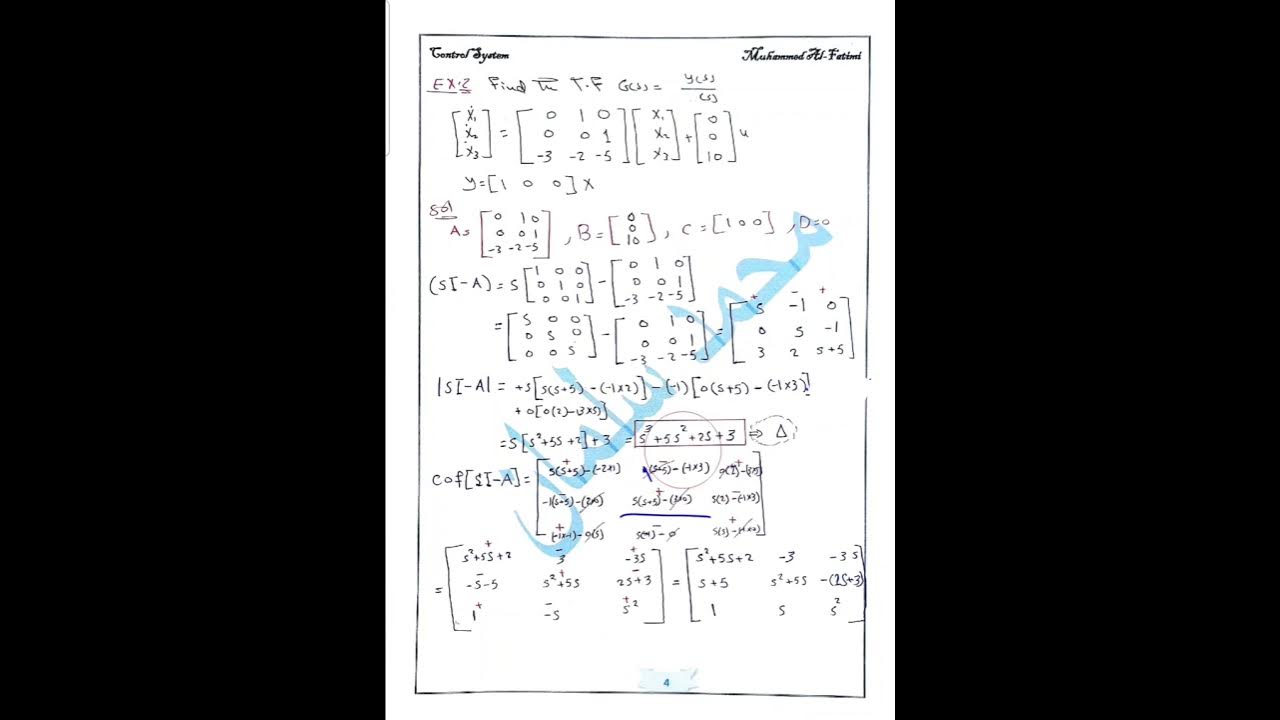 Control System Muhammed Al-Fatimi
EX.2 Find The T.F G(s) = Y(s)/(s)
[ẋ₁ ẋ₂ ẋ₃] = [0 1 0; 0 0 1; -3 -2 -5] [x₁ x₂ x₃] + [0 0 10] u
y = [1 0 0] x
Sol
A = [0 1 0; 0 0 1; -3 -2 -5], B = [0 0 10], C = [1 0 0], D=0
(SI-A) = S [1 0 0; 0 1 0; 0 0 1] - [0 1 0; 0 0 1; -3 -2 -5]
= [S 0 0; 0 S 0; 0 0 S] - [0 1 0; 0 0 1; -3 -2 -5] = [S -1 0; 0 S -1; 3 2 S+5]
|SI-A| = +S[S(S+5) - (-1×2)] - (-1)[0(S+5) - (-1×3)]
+ 0[0(2) - (3×S)]
= S[S²+5S+2] + 3 = S³+5S²+2S+3 ⇒ Δ
Cof[SI-A] = [S(S+5)-(-2×1) (S+5)-(-1×3) 0(2)-(3×S); -1(S+5)-(2×0) S(S+5)-(3×0) S(2)-(-1×3); (-1×-1)-0(S) S(-1)-0 S(S)-(-1×2)]
= [S²+5S+2 3 -3S; -S-5 S²+5S 2S+3; 1 -S S²] = [S²+5S+2 -3 -3S; S+5 S²+5S -(2S+3); 1 S S²]
محمد سلمان
4